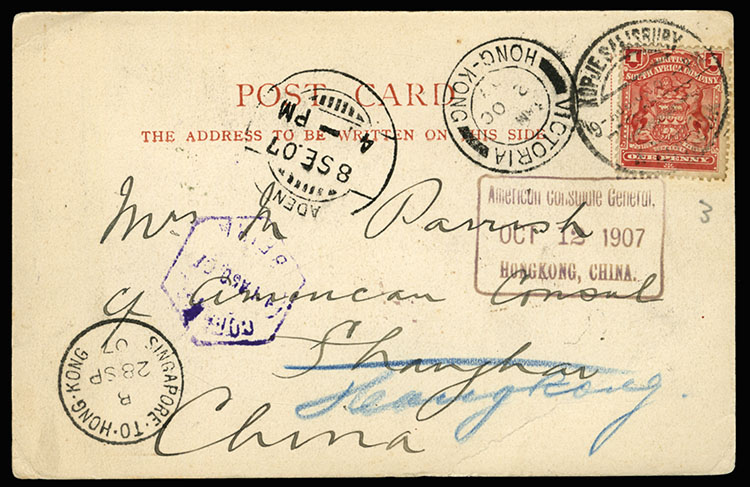 POST CARD
THE ADDRESS TO BE WRITTEN ON THIS SIDE
Mrs M Parrish
c/ American Consul
Shanghai
Hongkong.
China
KOPJE SALISBURY
1 1
BRITISH
SOUTH AFRICA COMPANY
ONE PENNY
VICTORIA
HONG-KONG
OC
ADEN
8 SE.07
4 PM
American Consulate General,
OCT 12 1907
HONGKONG, CHINA.
3
BEIRA
SINGAPORE·TO·HONG·KONG
B
28 SP
07